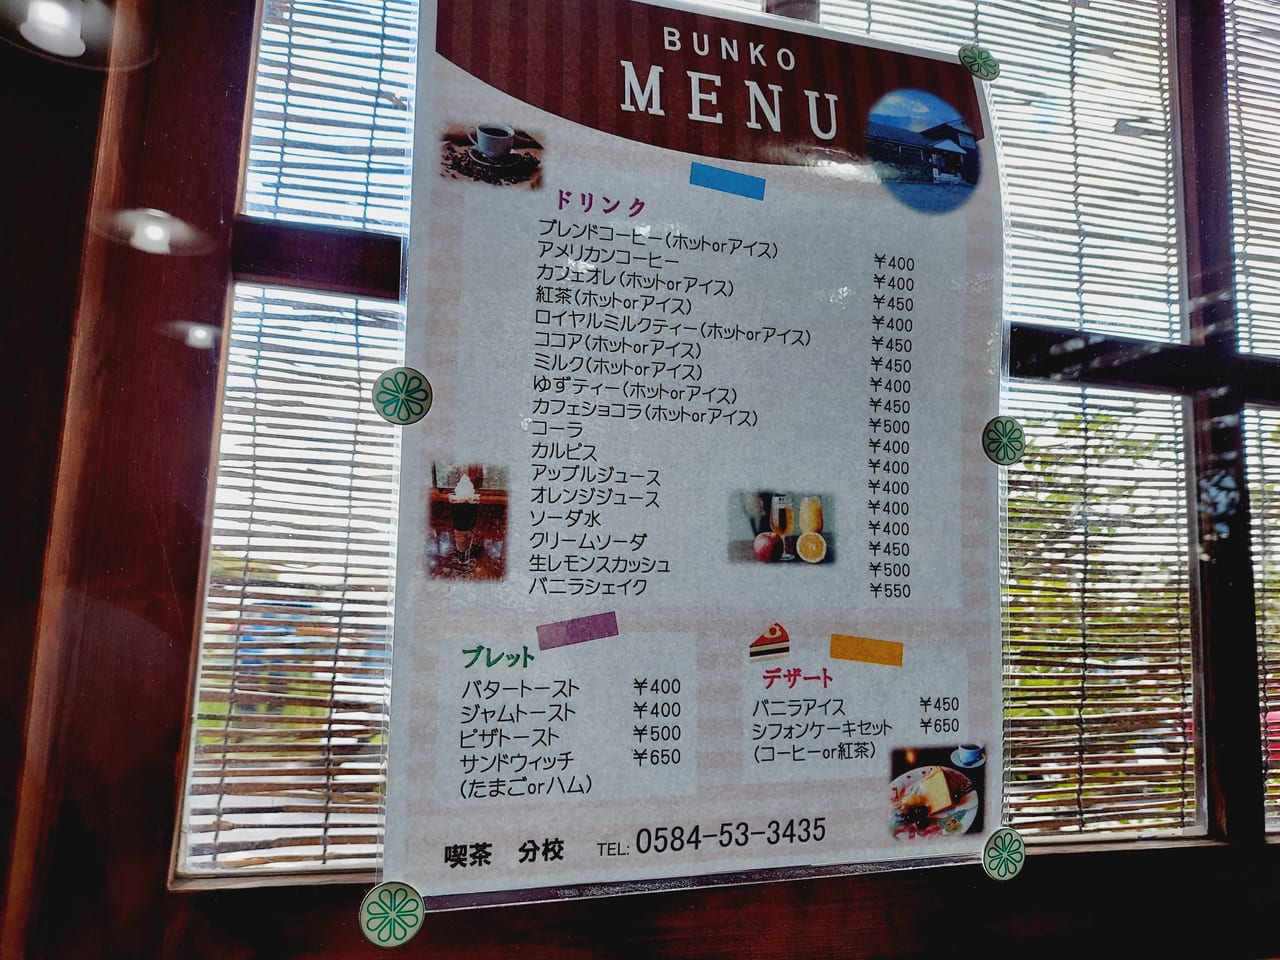 BUNKO
MENU
ドリンク
ブレンドコーヒー(ホットorアイス) ¥400
アメリカンコーヒー ¥400
カフェオレ(ホットorアイス) ¥450
紅茶(ホットorアイス) ¥400
ロイヤルミルクティー(ホットorアイス) ¥450
ココア(ホットorアイス) ¥450
ミルク(ホットorアイス) ¥400
ゆずティー(ホットorアイス) ¥450
カフェショコラ(ホットorアイス) ¥500
コーラ ¥400
カルピス ¥400
アップルジュース ¥400
オレンジジュース ¥400
ソーダ水 ¥400
クリームソーダ ¥450
生レモンスカッシュ ¥500
バニラシェイク ¥550
ブレット
バタートースト ¥400
ジャムトースト ¥400
ピザトースト ¥500
サンドウィッチ ¥650
(たまごorハム)
デザート
バニラアイス ¥450
シフォンケーキセット ¥650
(コーヒーor紅茶)
喫茶 分校 TEL: 0584-53-3435